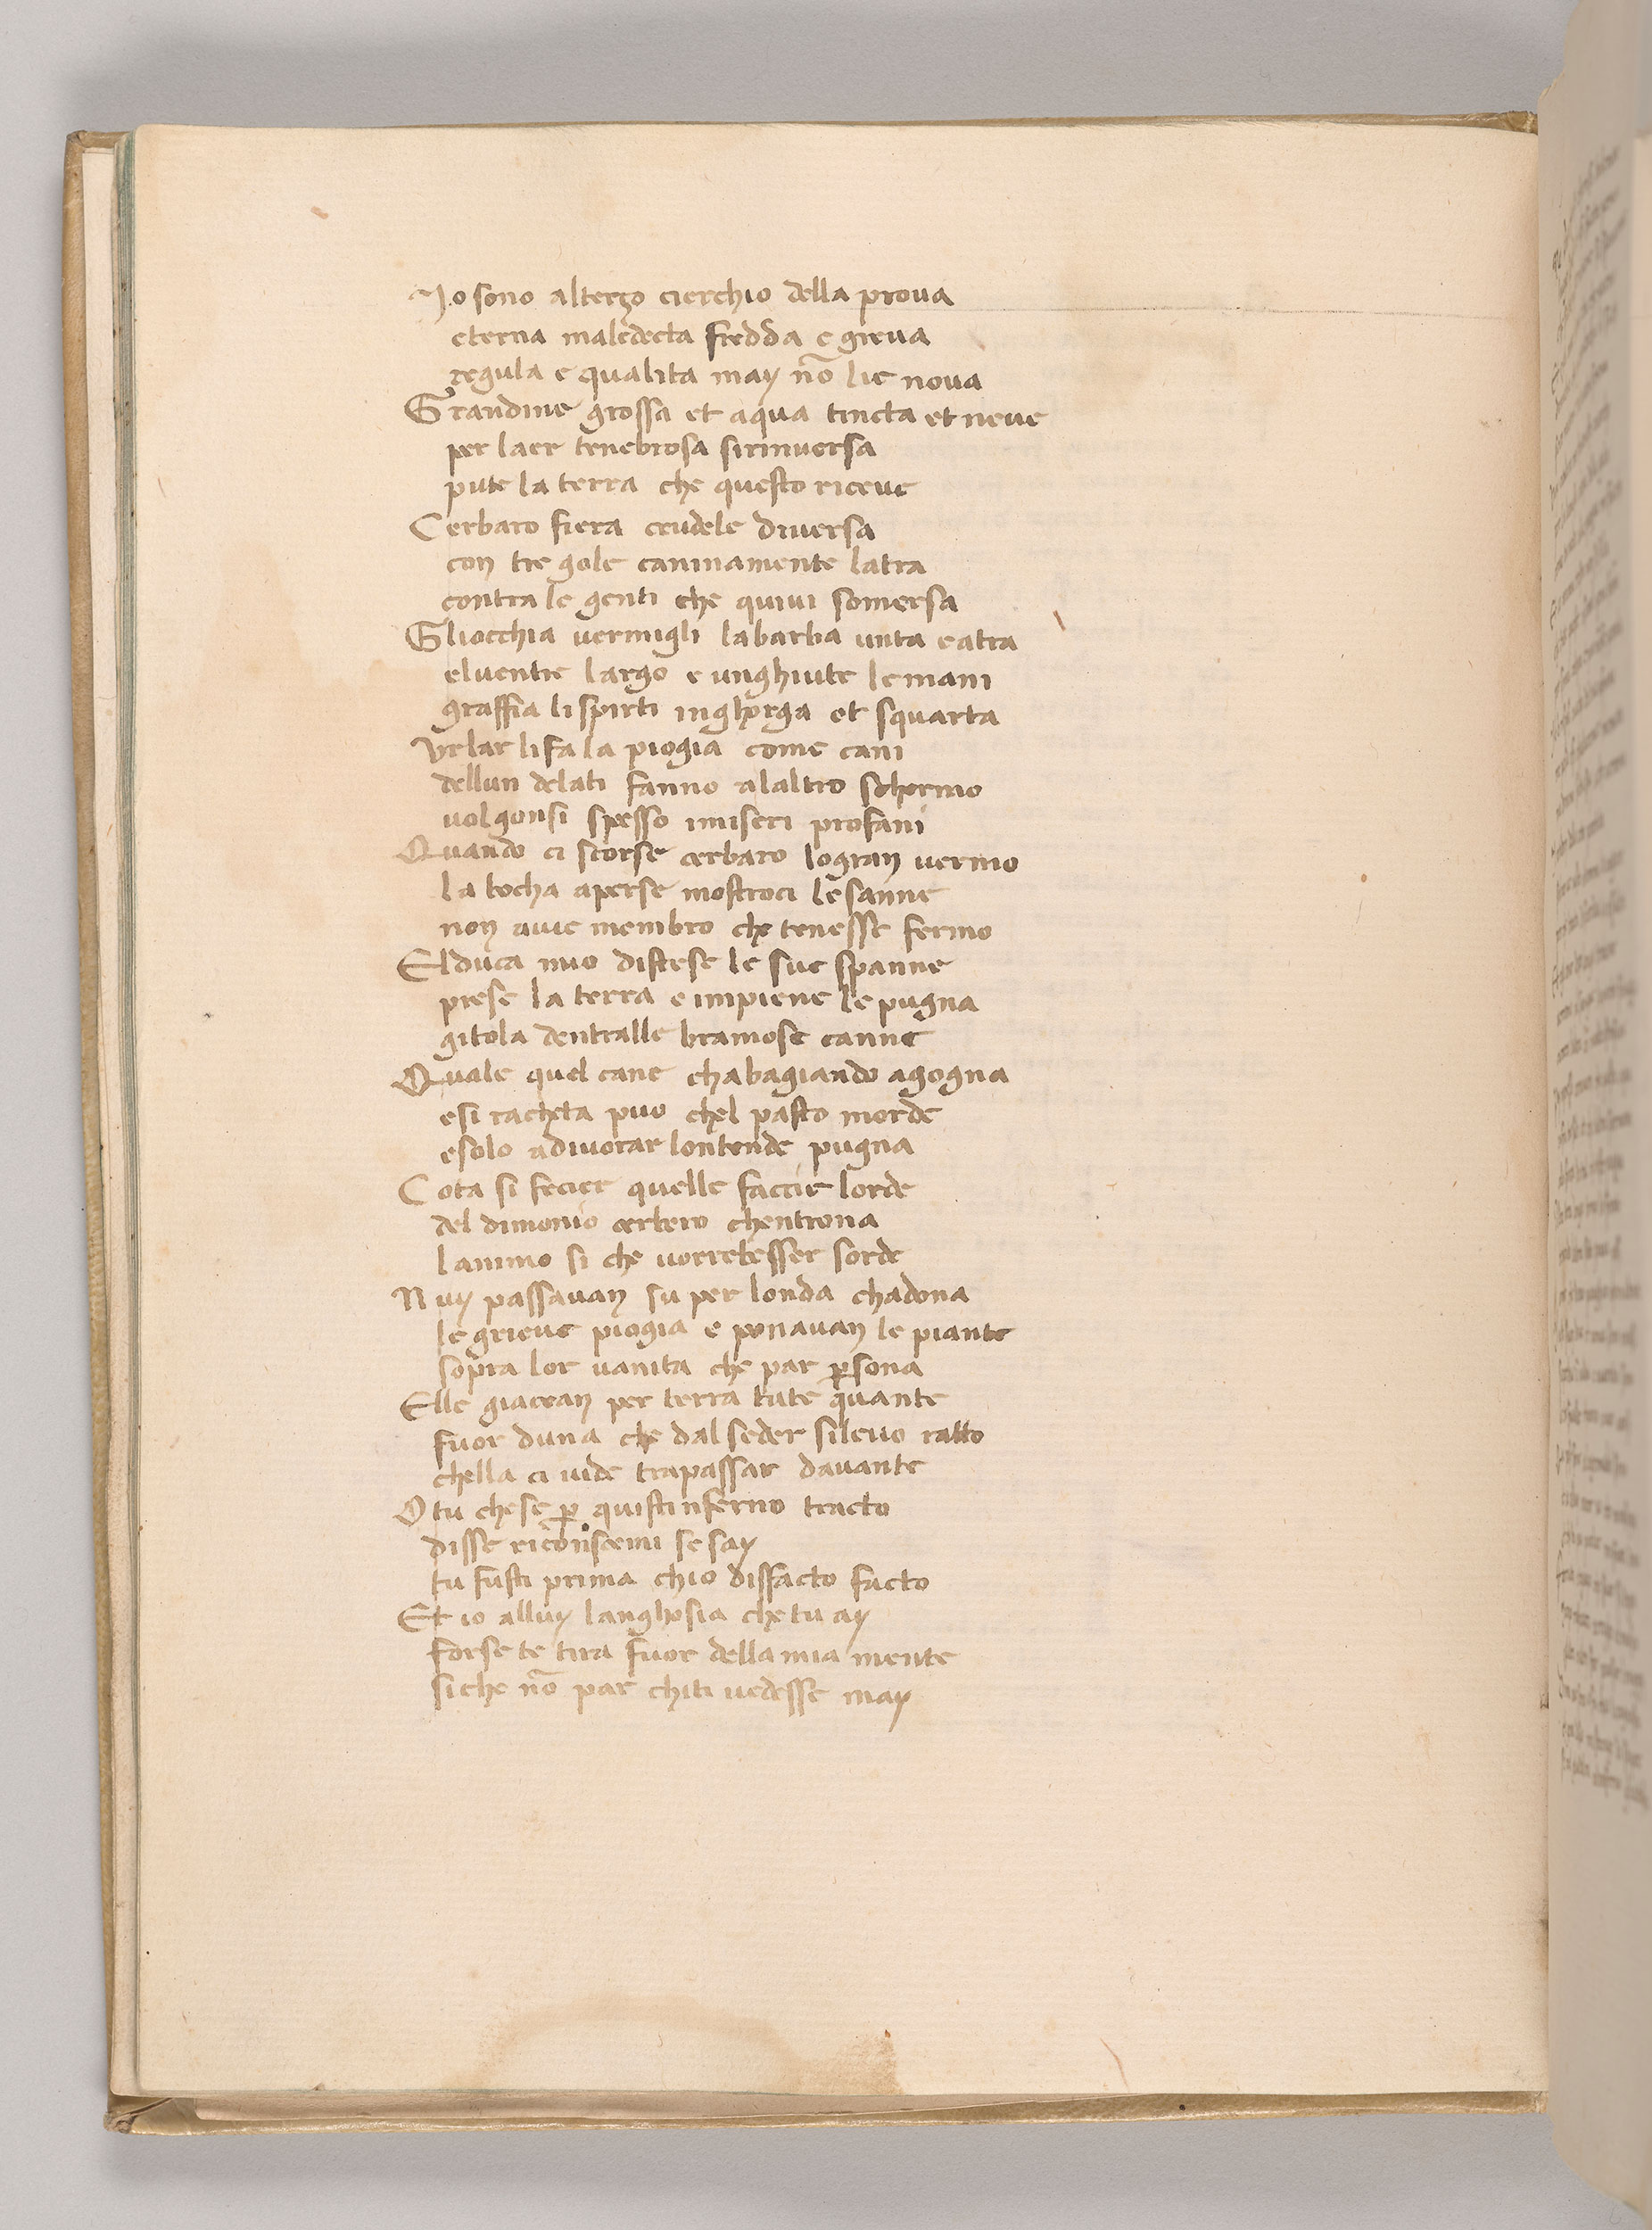 Io sono al terzo cierchio della prova
eterna maledecta fredda e grieva
regula e qualita may nō lie nova
Grandine grossa et aqua tincta et neve
per laer tenebrosa sirinversa
pute la terra che questo riceve
Cerbaro fiera crudele diversa
con tre gole caninamente latra
contra le genti che quivi somersa
Gliocchia vermigli labarba unta eatra
elventre largo e unghiute lemani
graffia li spirti inghorga et squarta
Vrlar lifa la piogia come cani
dellun delati fanno alaltro schermo
volgonsi spesso imiseri profani
Quando ci scorse cerbaro logran vermo
la bocha aperse mostroci le sanne
non avie membro che tenesse fermo
Elduca mio distese le sue spanne
prese la terra e impiene le pugna
gitola dentralle bramose canne
Quale quel cane chabagiando agogna
esi racheta puo chel pasto morde
esolo adivorar lontende pugna
Cota si fecier quelle faccie lorde
del dimonio cerbero chentrona
lanimo si che vorrebesser sorde
Nuy passavan su per londa chadona
le grieve piogia e ponavan le piante
sopra lor vanita che par psona
Elle giacean per terra tute quante
fuor duna che dal seder silevo ratto
chella ci vide trapassar davante
O tu chese p quistinferno tracto
disse riconoscemi se say
tu fusti prima chio disfacto facto
Et io alluy langhosia che tu ay
forse te tira fuor della mia mente
siche nō par chiti vedesse may